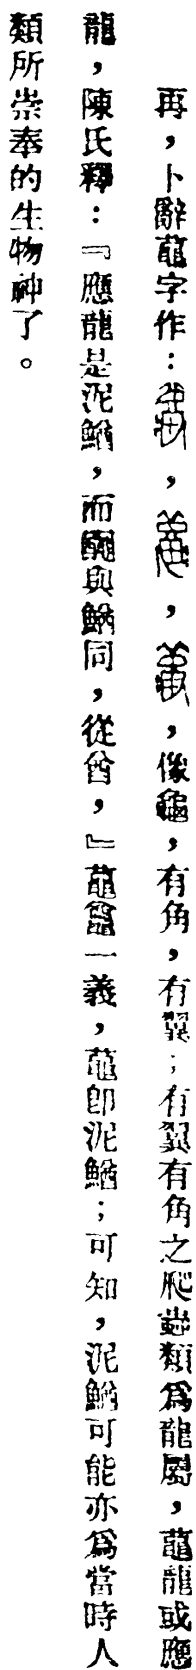 再，卜辭蘢字作：，，，像龜，有角，有翼；有翼有角之爬蟲類爲龍屬，蘢龍或應
龍，陳氏釋：『應龍是泥鰌，而與鰌同，從酋，』蘢一義，蘢卽泥鰌；可知，泥鰌可能亦爲當時人
類所崇奉的生物神了。